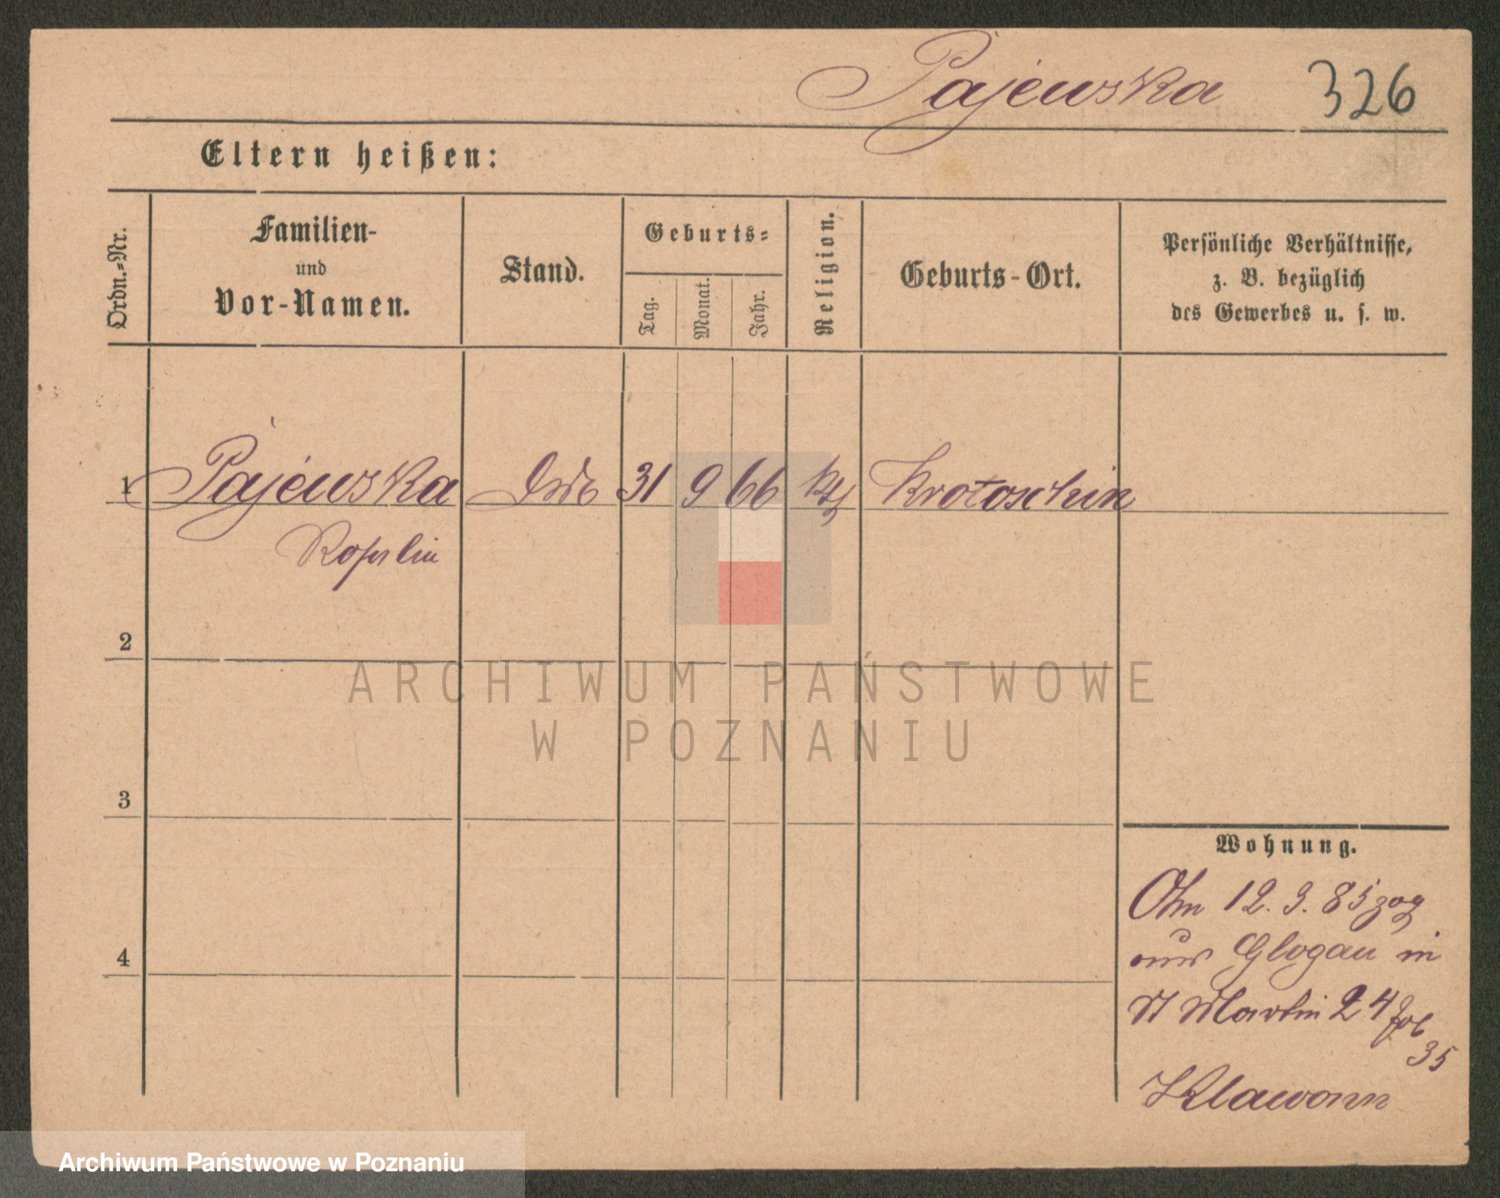 Pajewska 326
Eltern heißen:
Ordn.-Nr.
Familien-
und
Vor-Namen.
Stand.
Geburts-
Tag.
Monat.
Jahr.
Religion.
Geburts-Ort.
Persönliche Verhältnisse,
z. B. bezüglich
des Gewerbes u. s. w.
1 Pajewska 31 9 66 kth Krotoschin
2
3
4
Wohnung.
12. 3. 85 zog
aus Glogau in
St Martin 24
35
Klawonn
ARCHIWUM PAŃSTWOWE
W POZNANIU
Archiwum Państwowe w Poznaniu